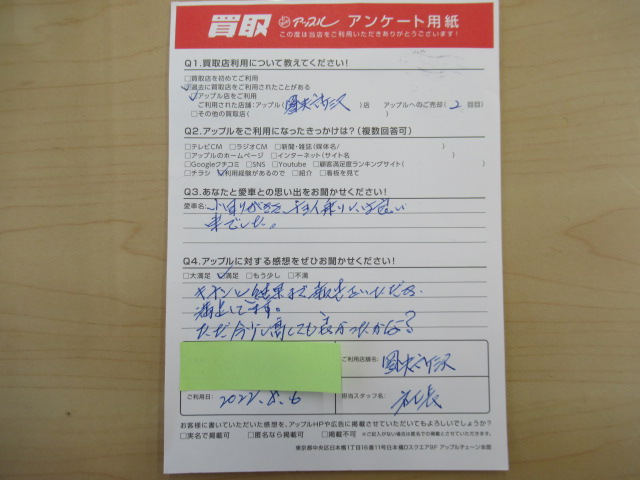 買取 アップル アンケート用紙
この度は当店をご利用いただきありがとうございます!
Q1.買取店利用について教えてください!
□買取店を初めてご利用
□過去に買取店をご利用されたことがある
□アップル店をご利用
ご利用された店舗:アップル( 圏央所沢 )店 アップルへのご売却( 2 回目)
□その他の買取店( )
Q2.アップルをご利用になったきっかけは?(複数回答可)
□テレビCM □ラジオCM □新聞・雑誌(媒体名/ )
□アップルのホームページ □インターネット(サイト名 )
□Googleクチコミ □SNS □Youtube □顧客満足度ランキングサイト( )
□チラシ □利用経験があるので □紹介 □看板を見て
Q3.あなたと愛車との思い出をお聞かせください!
愛車名: 小回りがきき、チョイ乗りには良い
車でした。
Q4.アップルに対する感想をぜひお聞かせください!
□大満足 □満足 □もう少し □不満
キチンと結果まで報告をいただき
満足してます。
ただ今少し高くても良かったかな?
ご利用店舗名: 圏央所沢
ご利用日: 2022.8.6 担当スタッフ名: 社長
お客様に書いていただいた感想を、アップルHPや広告に掲載させていただいてもよろしいでしょうか?
□実名で掲載可 □匿名なら掲載可 □掲載不可 ※ご記入がない場合は匿名での掲載とさせていただきます。
東京都中央区日本橋1丁目16番11号日本橋Dスクエア9F アップルチェーン本部